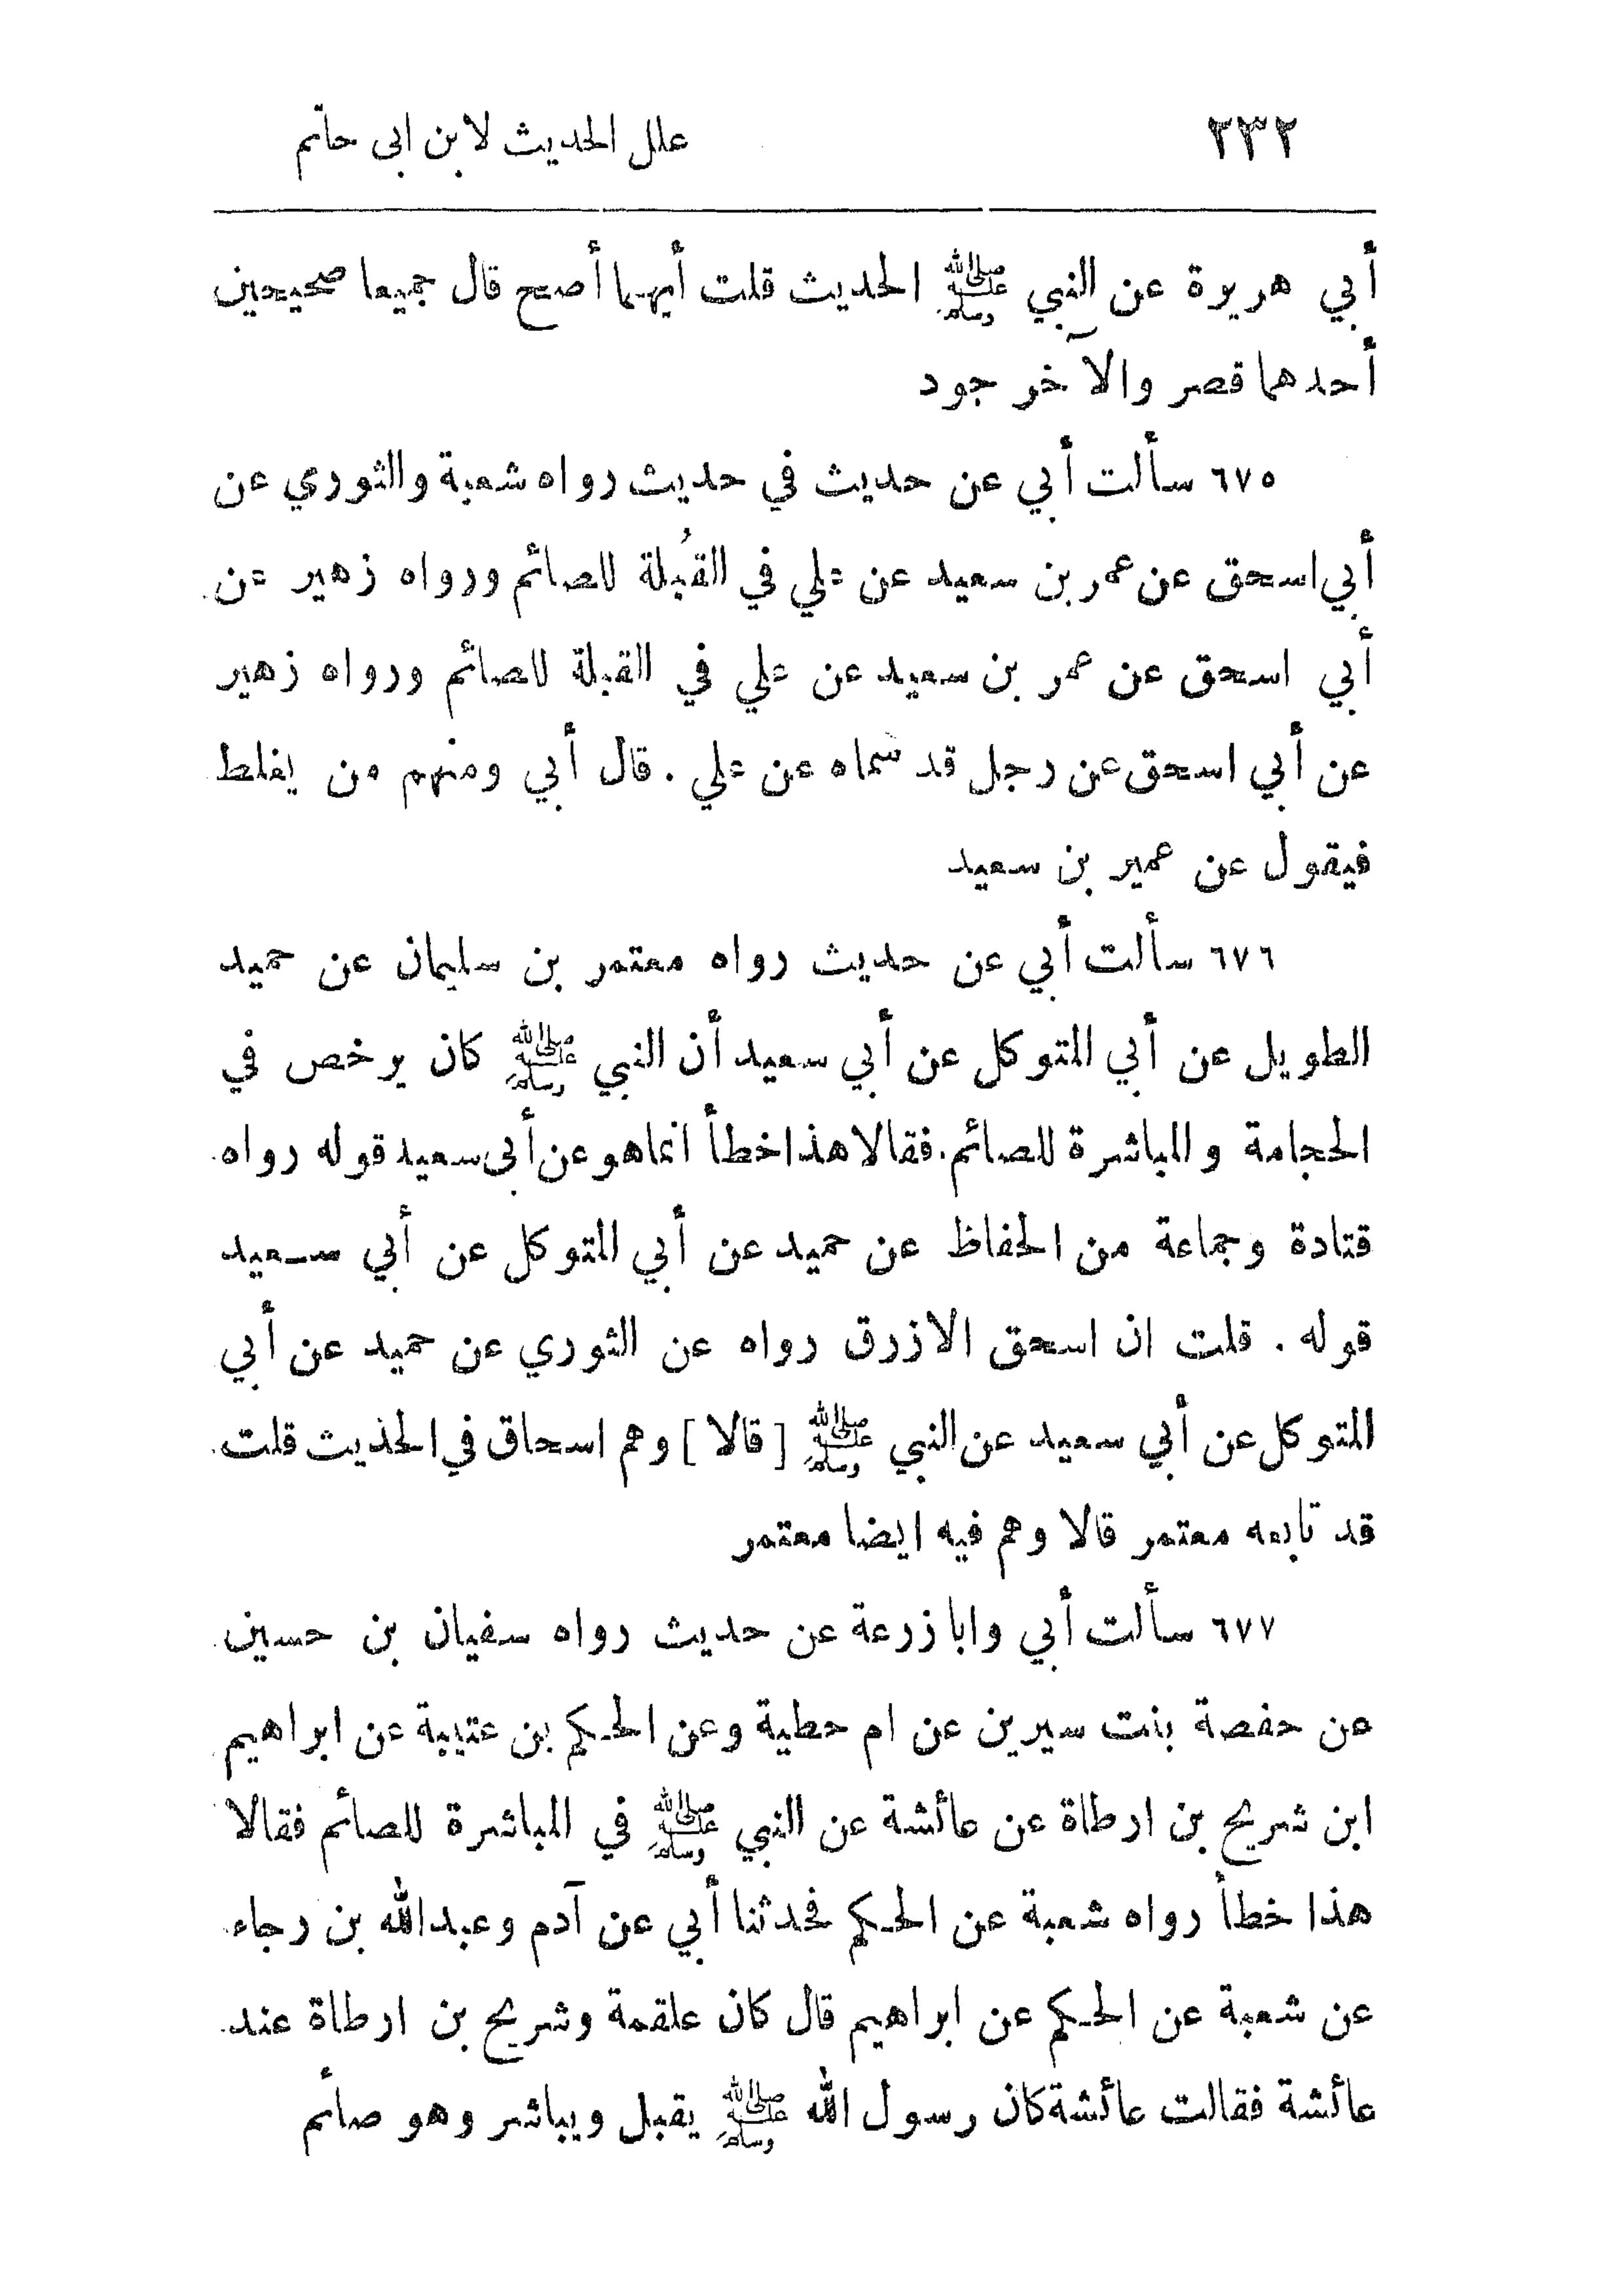 ٢٣٢ علل الحديث لابن ابى حاتم
أبي هريرة عن النبي ﷺ الحديث قلت أيهما أصح قال جميعا صحيحين
أحدهما قصر والآخر جود
٦٧٥ سألت أبي عن حديث في حديث رواه شعبة والثوري عن
أبي اسحق عن عمر بن سعيد عن علي في القُبلة للصائم ورواه زهير عن
أبي اسحق عن عمر بن سعيد عن علي في القبلة للصائم ورواه زهير
عن أبي اسحق عن رجل قد سماه عن علي . قال أبي ومنهم من يغلط
فيقول عن عمير بن سعيد
٦٧٦ سألت أبي عن حديث رواه معتمر بن سليمان عن حميد
الطويل عن أبي المتوكل عن أبي سعيد أن النبي ﷺ كان يرخص في
الحجامة والمباشرة للصائم . فقالا هذا خطأ انما هو عن أبى سعيد قوله رواه
قتادة وجماعة من الحفاظ عن حميد عن أبي المتوكل عن أبي سعيد
قوله . قلت ان اسحق الازرق رواه عن الثوري عن حميد عن أبي
المتوكل عن أبي سعيد عن النبي ﷺ [ قالا ] وهم اسحاق في الحذيث قلت
قد تابعه معتمر قالا وهم فيه ايضا معتمر
٦٧٧ سألت أبي وابا زرعة عن حديث رواه سفيان بن حسين
عن حفصة بنت سيرين عن ام حطية وعن الحكم بن عتيبة عن ابراهيم
ابن شريح بن ارطاة عن عائشة عن النبي ﷺ في المباشرة للصائم فقالا
هذا خطأ رواه شعبة عن الحكم فحدثنا أبي عن آدم وعبدالله بن رجاء
عن شعبة عن الحكم عن ابراهيم قال كان علقمة وشريح بن ارطاة عند
عائشة فقالت عائشة كان رسول الله ﷺ يقبل ويباشر وهو صائم